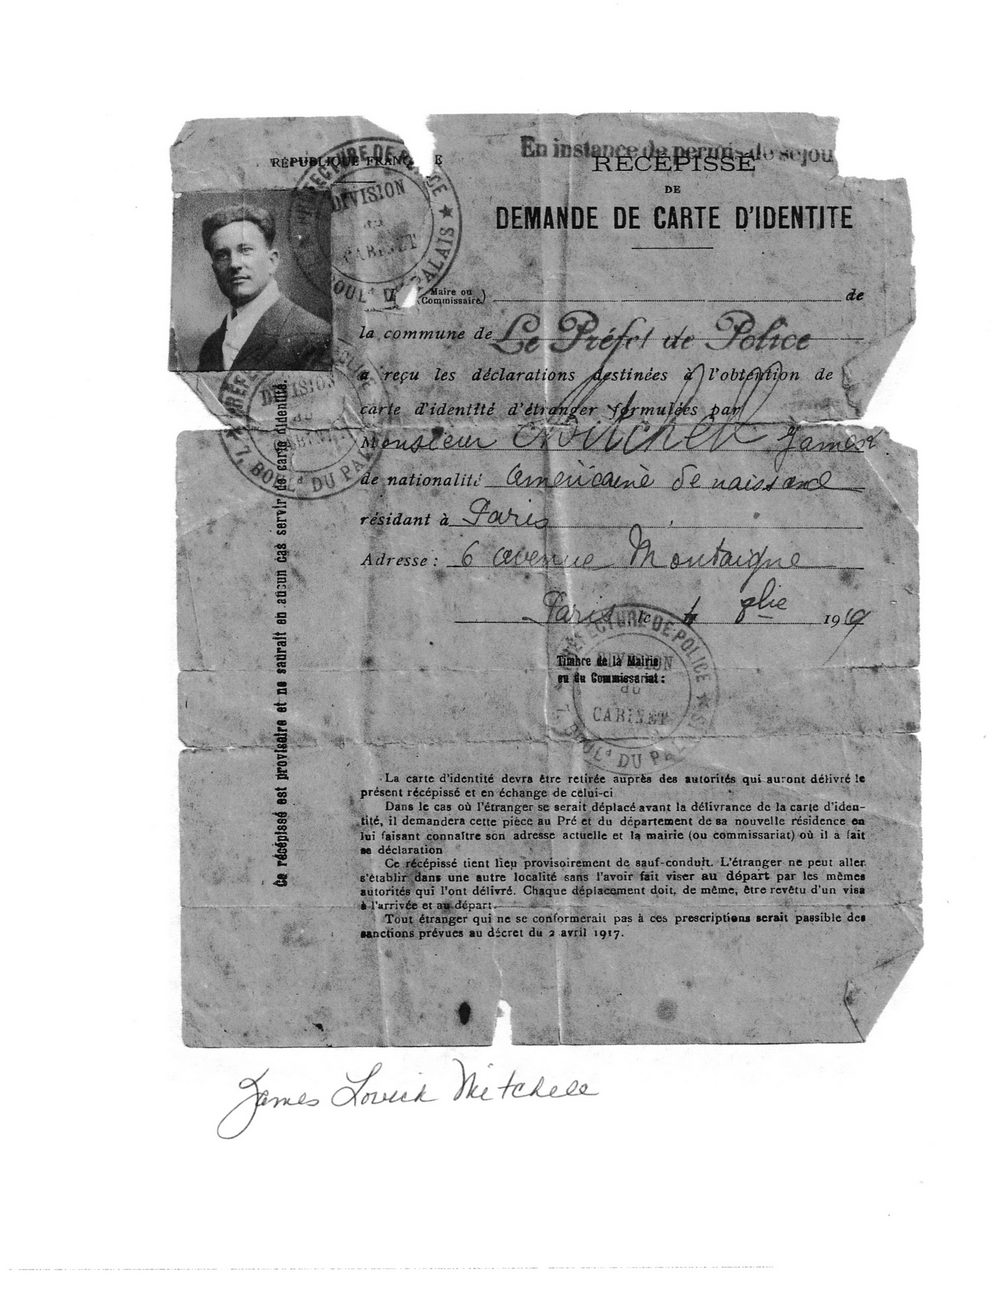 RÉPUBLIQUE FRANÇ E
En instance de permis de séjou
RÉCÉPISSÉ
DE
DEMANDE DE CARTE D'IDENTITE
PRÉFECTURE DE POLICE
DIVISION
du
CABINET
BOUL.ᵈ DU PALAIS
Maire ou
Commissaire) de
la commune de Le Préfet de Police
a reçu les déclarations destinées à l'obtention de
carte d'identité d'étranger formulées par
Monsieur Mitchell James
de nationalité américaine de naissance
résidant à Paris
Adresse : 6 avenue Montaigne
Paris le 4 1919
PRÉFECTURE DE POLICE
DIVISION
du
CABINET
7, BOUL.ᵈ DU PALAIS
Ce récépissé est provisoire et ne saurait en aucun cas servir de carte d'identité.
Timbre de la Mairie
ou du Commissariat :
PRÉFECTURE DE POLICE
DIVISION
du
CABINET
BOUL.ᵈ DU PA
La carte d'identité devra être retirée auprès des autorités qui auront délivré le
présent récépissé et en échange de celui-ci
Dans le cas où l'étranger se serait déplacé avant la délivrance de la carte d'iden-
tité, il demandera cette pièce au Pré et du département de sa nouvelle résidence en
lui faisant connaître son adresse actuelle et la mairie (ou commissariat) où il a fait
sa déclaration
Ce récépissé tient lieu provisoirement de sauf-conduit. L'étranger ne peut aller
s'établir dans une autre localité sans l'avoir fait viser au départ par les mêmes
autorités qui l'ont délivré. Chaque déplacement doit, de même, être revêtu d'un visa
à l'arrivée et au départ.
Tout étranger qui ne se conformerait pas à ces prescriptions serait passible des
sanctions prévues au décret du 2 avril 1917.
James Lovick Mitchell